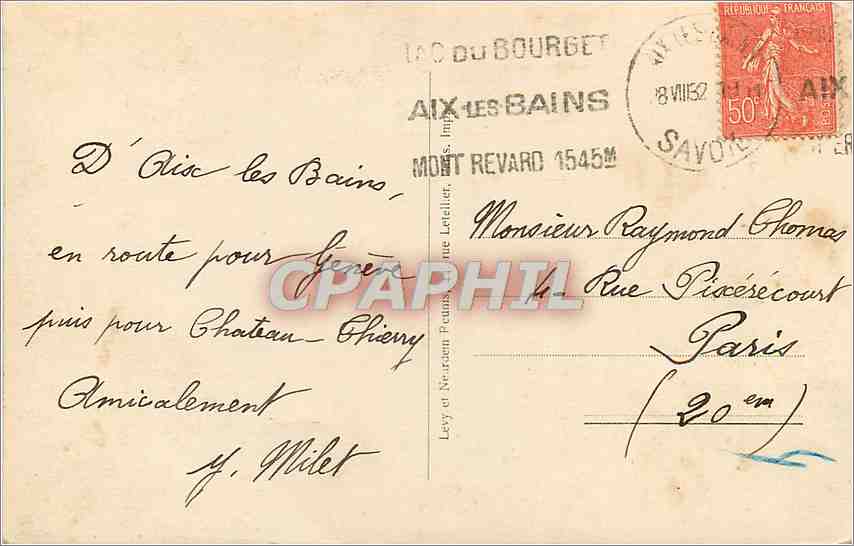 LAC DU BOURGET
AIX-LES-BAINS
MONT REVARD 1545M
AIX LES BAINS
8 VII 32
SAVOIE
RÉPUBLIQUE FRANÇAISE
50c
POSTES
AIX
D'Aix les Bains,
en route pour Genève
puis pour Chateau-Thierry
Amicalement
Y. Milet
Levy et Neurdein Réunis, rue Letellier, Paris, Imp.
Monsieur Raymond Thomas
4 - Rue Pixérécourt
Paris
(20em)
CPAPHIL